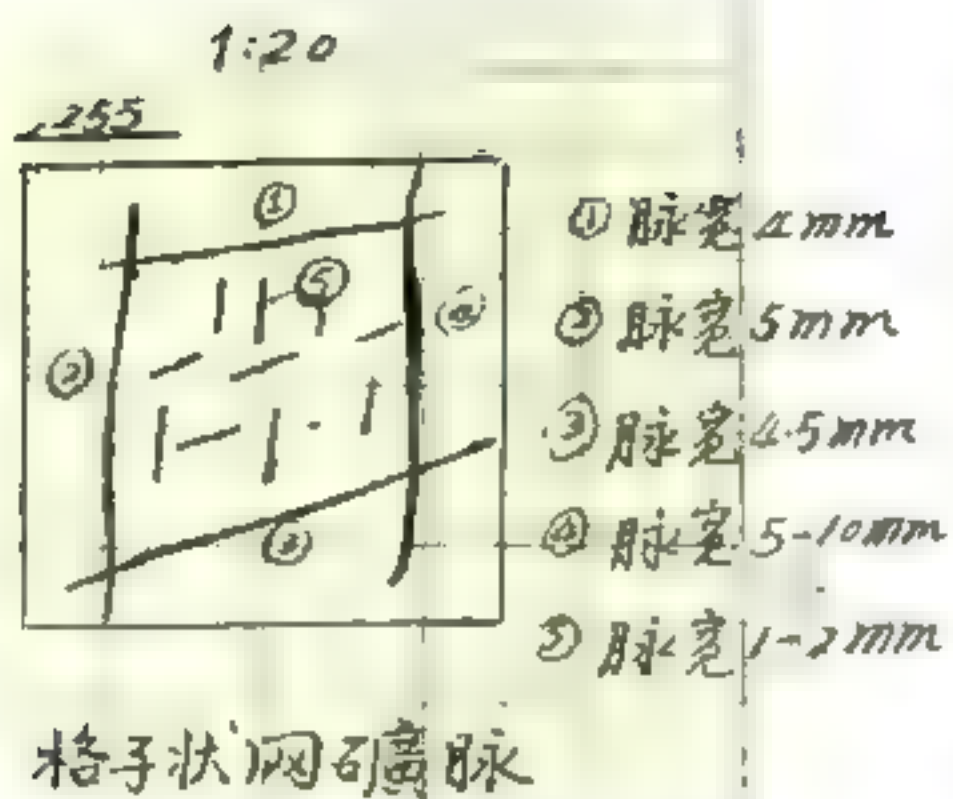 1:20
255
①
⑤
④
②
③
① 脉宽 4mm
② 脉宽 5mm
③ 脉宽 4.5mm
④ 脉宽 5-10mm
⑤ 脉宽 1-2mm
格子状网礦脉